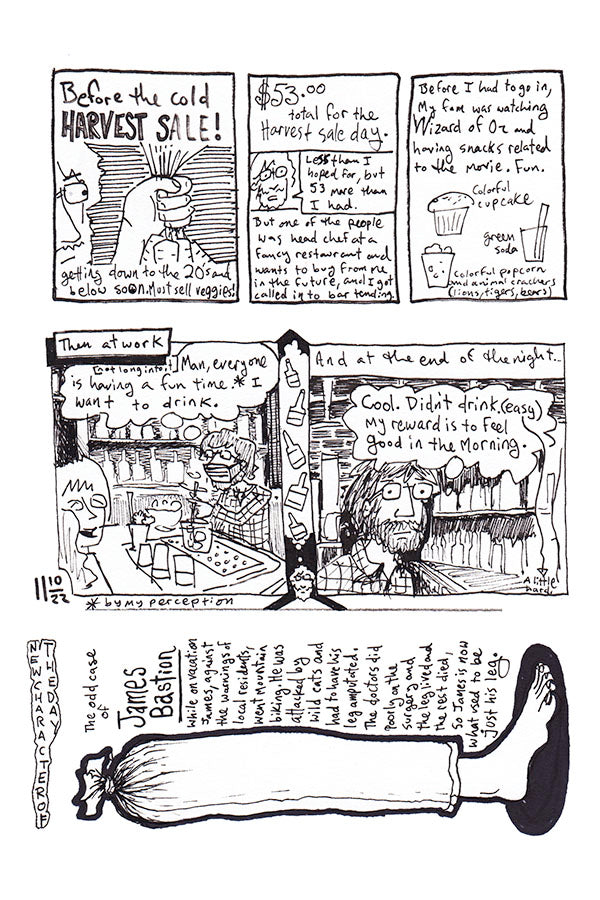 Before the cold
HARVEST SALE!
getting down to the 20's and
below soon. Must sell veggies!
$53.00
total for the
Harvest sale day.
Less than I
hoped for, but
53 more than
I had.
But one of the people
was head chef at a
fancy restaurant and
wants to buy from me
in the future, and I got
called in to bar tending.
Before I had to go in,
My fam was watching
Wizard of Oz and
having snacks related
to the movie. Fun.
Colorful
cupcake
green
soda
Colorful popcorn
and animal crackers
(lions, tigers, bears)
Then at work
[Not long into it] Man, everyone
is having a fun time.* I
want to drink.
And at the end of the night...
Cool. Didn't drink. (easy)
My reward is to feel
good in the Morning.
A little
hard.
11 10
22
* by my perception
THE DAY
NEW CHARACTER OF
The odd case
of
James
Bastion
While on vacation
James, against
the warnings of
local residents,
went Mountain
biking. He was
attacked by
wild cats and
had to have his
leg amputated.
The doctors did
poorly on the
surgery and
the leg lived and
the rest died,
So James is now
what used to be
just his leg.